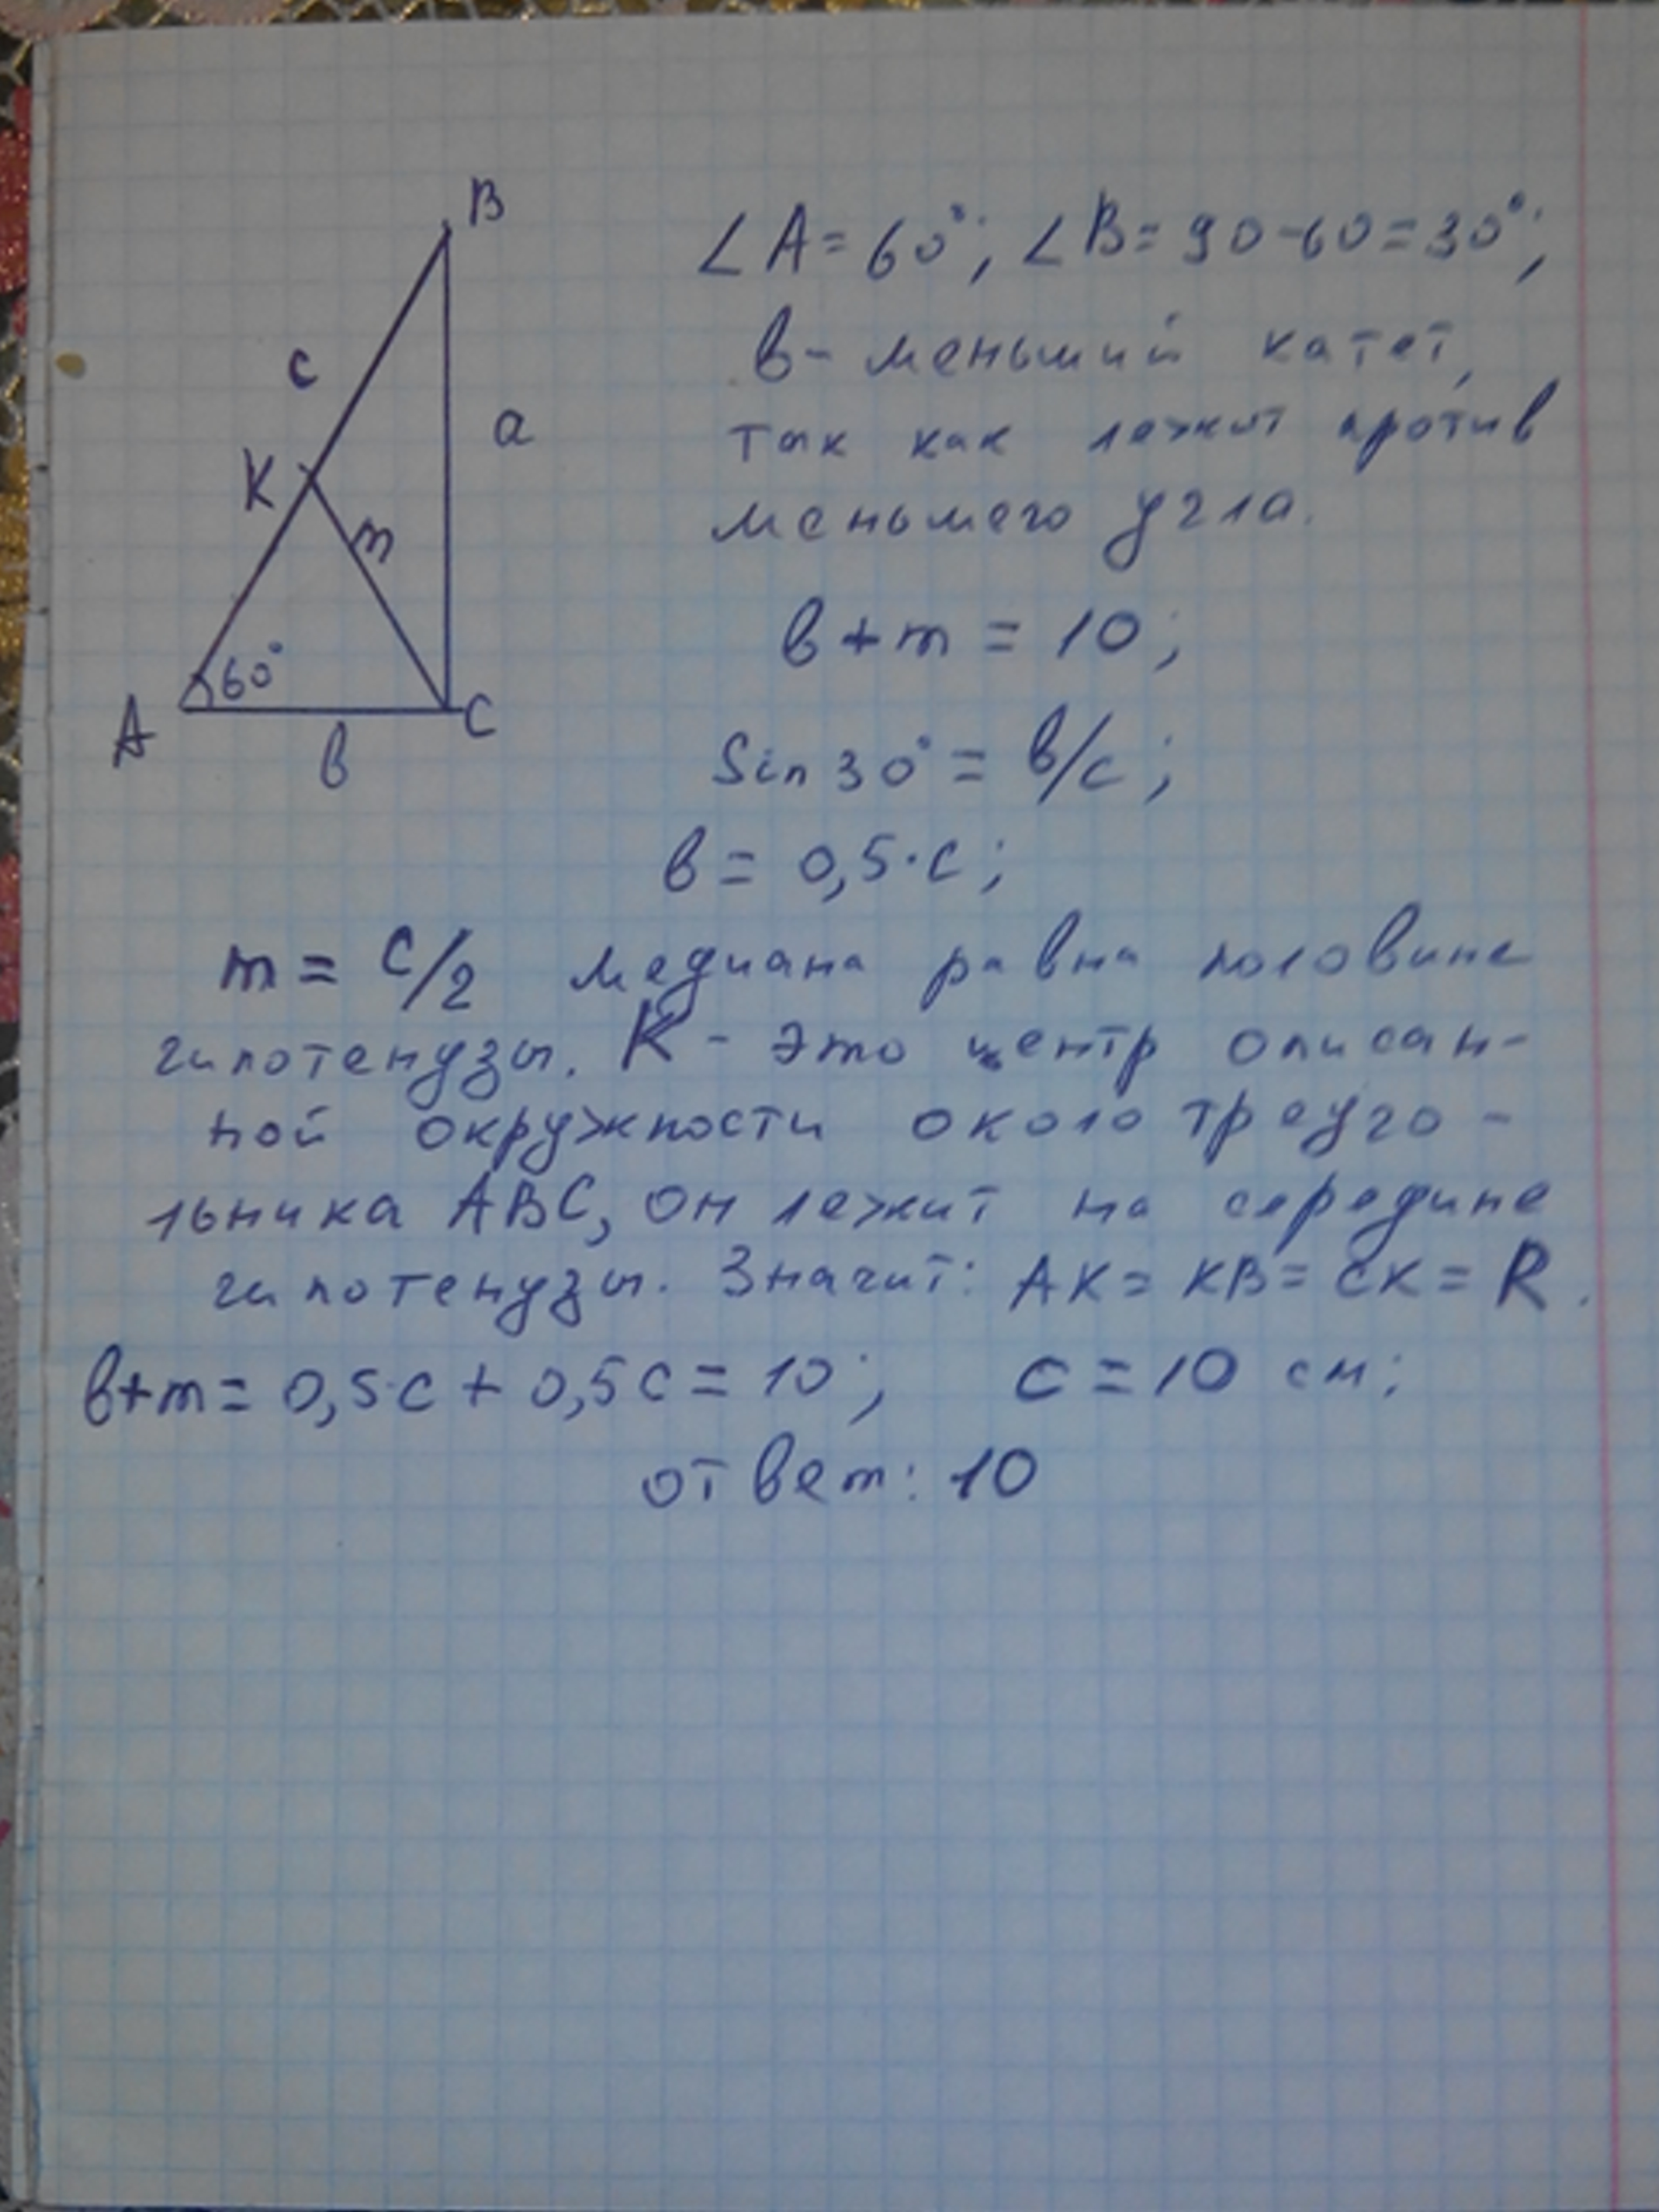 B
c
a
K
m
60°
A
в
C
∠A=60°; ∠B=90-60=30°;
в- меньший катет,
так как лежит против
меньшего угла.
в+m=10;
Sin30°=в/c;
в=0,5·c;
m=c/2 медиана равна половине
гипотенузы. K- это центр описан-
ной окружности около треуго-
льника ABC, он лежит на середине
гипотенузы. Значит: AK=KB=CK=R.
в+m=0,5·c+0,5c=10; c=10 см;
ответ: 10